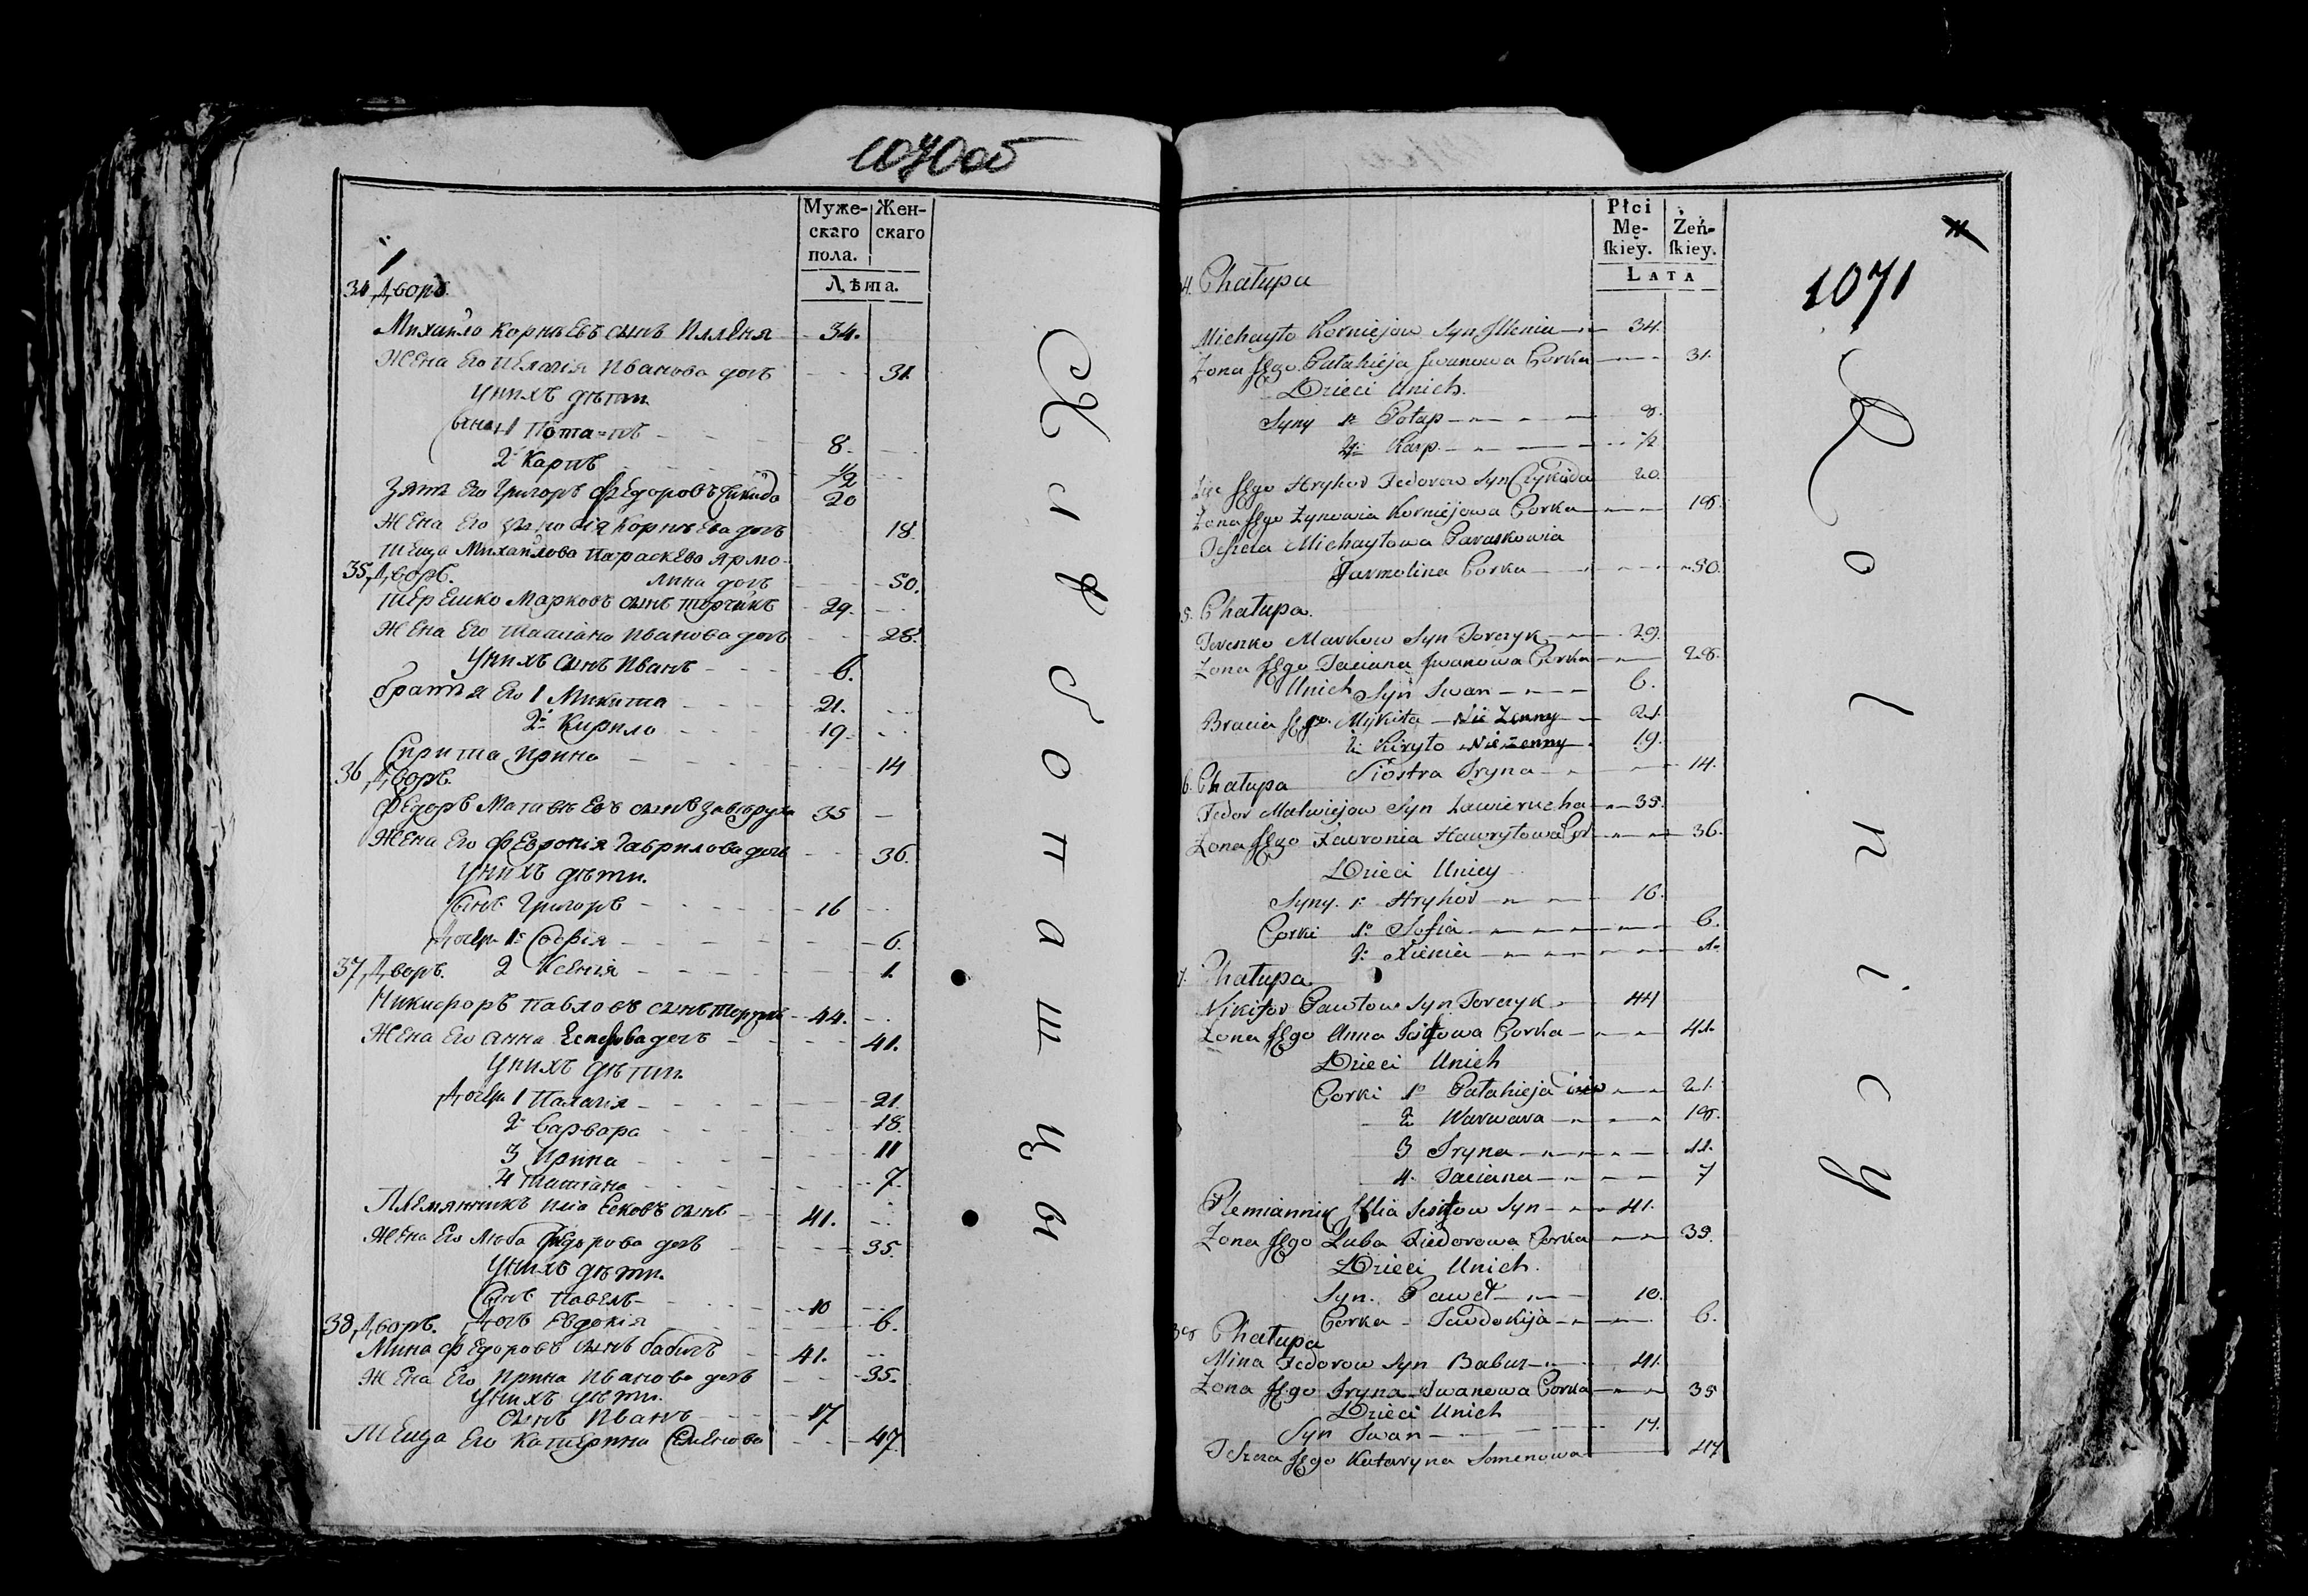 1070об
Муже-
скаго
пола.
Жен-
скаго
Лѣта.
34 Дворъ.
Михайло Корнѣевъ сынъ Илленя 34.
Жена Его Пелагія Иванова дочь 31
Унихъ дѣти
Сыны 1 Потапъ 8.
2 Карпъ 1/2
Зять Его Григоръ Федоровъ 20
Жена Его Зиновія Корнѣева дочь 18.
Теща Михайлова Параскева Ярмо-
лина дочь 50.
35 Дворъ.
Терешко Марковъ сынъ Торчикъ 29.
Жена Его Татіана Иванова дочь 28.
Унихъ сынъ Иванъ 6.
братья Его 1 Микита 21.
2 Кирило 19.
Сестра Ирина 14
36 Дворъ.
Федоръ Матвѣевъ сынъ Завѣруха 35
Жена Его Февронія Гаврилова дочь 36.
Унихъ дѣти.
Сынъ Григоръ 16
Дочери 1 Софія 6.
2 Ксенія 1.
37 Дворъ.
Никифоръ Павловъ сынъ Торчикъ 44.
Жена Его Анна дочь 41.
Унихъ дѣти.
Дочери 1 Палагія 21.
2 Варвара 18.
3 Ирина 11
4 Татіана 7.
Племянникъ Илія сынъ 41.
Жена Его Люба Федорова дочь 35.
Унихъ дѣти.
Сынъ Павелъ 10
Дочь Евдокія 6.
38 Дворъ.
Мина Федоровъ сынъ Бабичъ 41.
Жена Его Ирина Иванова дочь 35.
Унихъ дѣти.
сынъ Иванъ 17
Теща Его Катерина Семенова 47
Хлѣбопашцы
Płci
Mę-
ſkiey.
Żeń-
ſkiey.
LATA
1071
4. Chałupa
Michayło Korniejow Syn Illenia 34.
Zona Jego Pałahieja Jwanowa Corka 31.
Dzieci Unich.
Syny 1. Potap 8.
2. Karp 1/2
Zięć Jego Hryhor Fedorow Syn 20.
Zona Jego Zynowia Korniejowa Corka 18.
Teszcza Michayłowa Paraskowia
Jarmolina Corka 50.
5. Chałupa.
Tereszko Markow Syn Torczyk 29.
Zona Jego Taciana Jwanowa Corka 28.
Unich Syn Iwan 6.
Bracia Jego Mykita Nie Zenny 21.
2. Kiryło Nie Zenny 19.
Siostra Iryna 14.
6. Chałupa
Fedor Matwiejow Syn Zawierucha 35.
Zona Jego Fawronia Hawryłowa Cor 36.
Dzieci Unicy
Syny. 1. Hryhor 16.
Corki 1. Sofia 6.
2. Xienia 1.
7. Chałupa
Nikifor Pawłow Syn Torczyk 44
Zona Jego Anna Corka 41.
Dzieci Unich
Corki 1. Pałahieja 21.
2. Warwara 18.
3 Iryna 11.
4. Taciana 7
Plemiannik Illia Syn 41.
Zona Jego Luba Fiedorowa Corka 35.
Dzieci Unich.
Syn. Paweł 10.
Corka Jawdokija 6.
38 Chałupa
Mina Fedorow Syn Babicz 41.
Zona Jego Iryna Iwanowa Corka 35
Dzieci Unich
Syn Iwan 17.
Teszcza Jego Kataryna Somenowa 47
Rolnicy